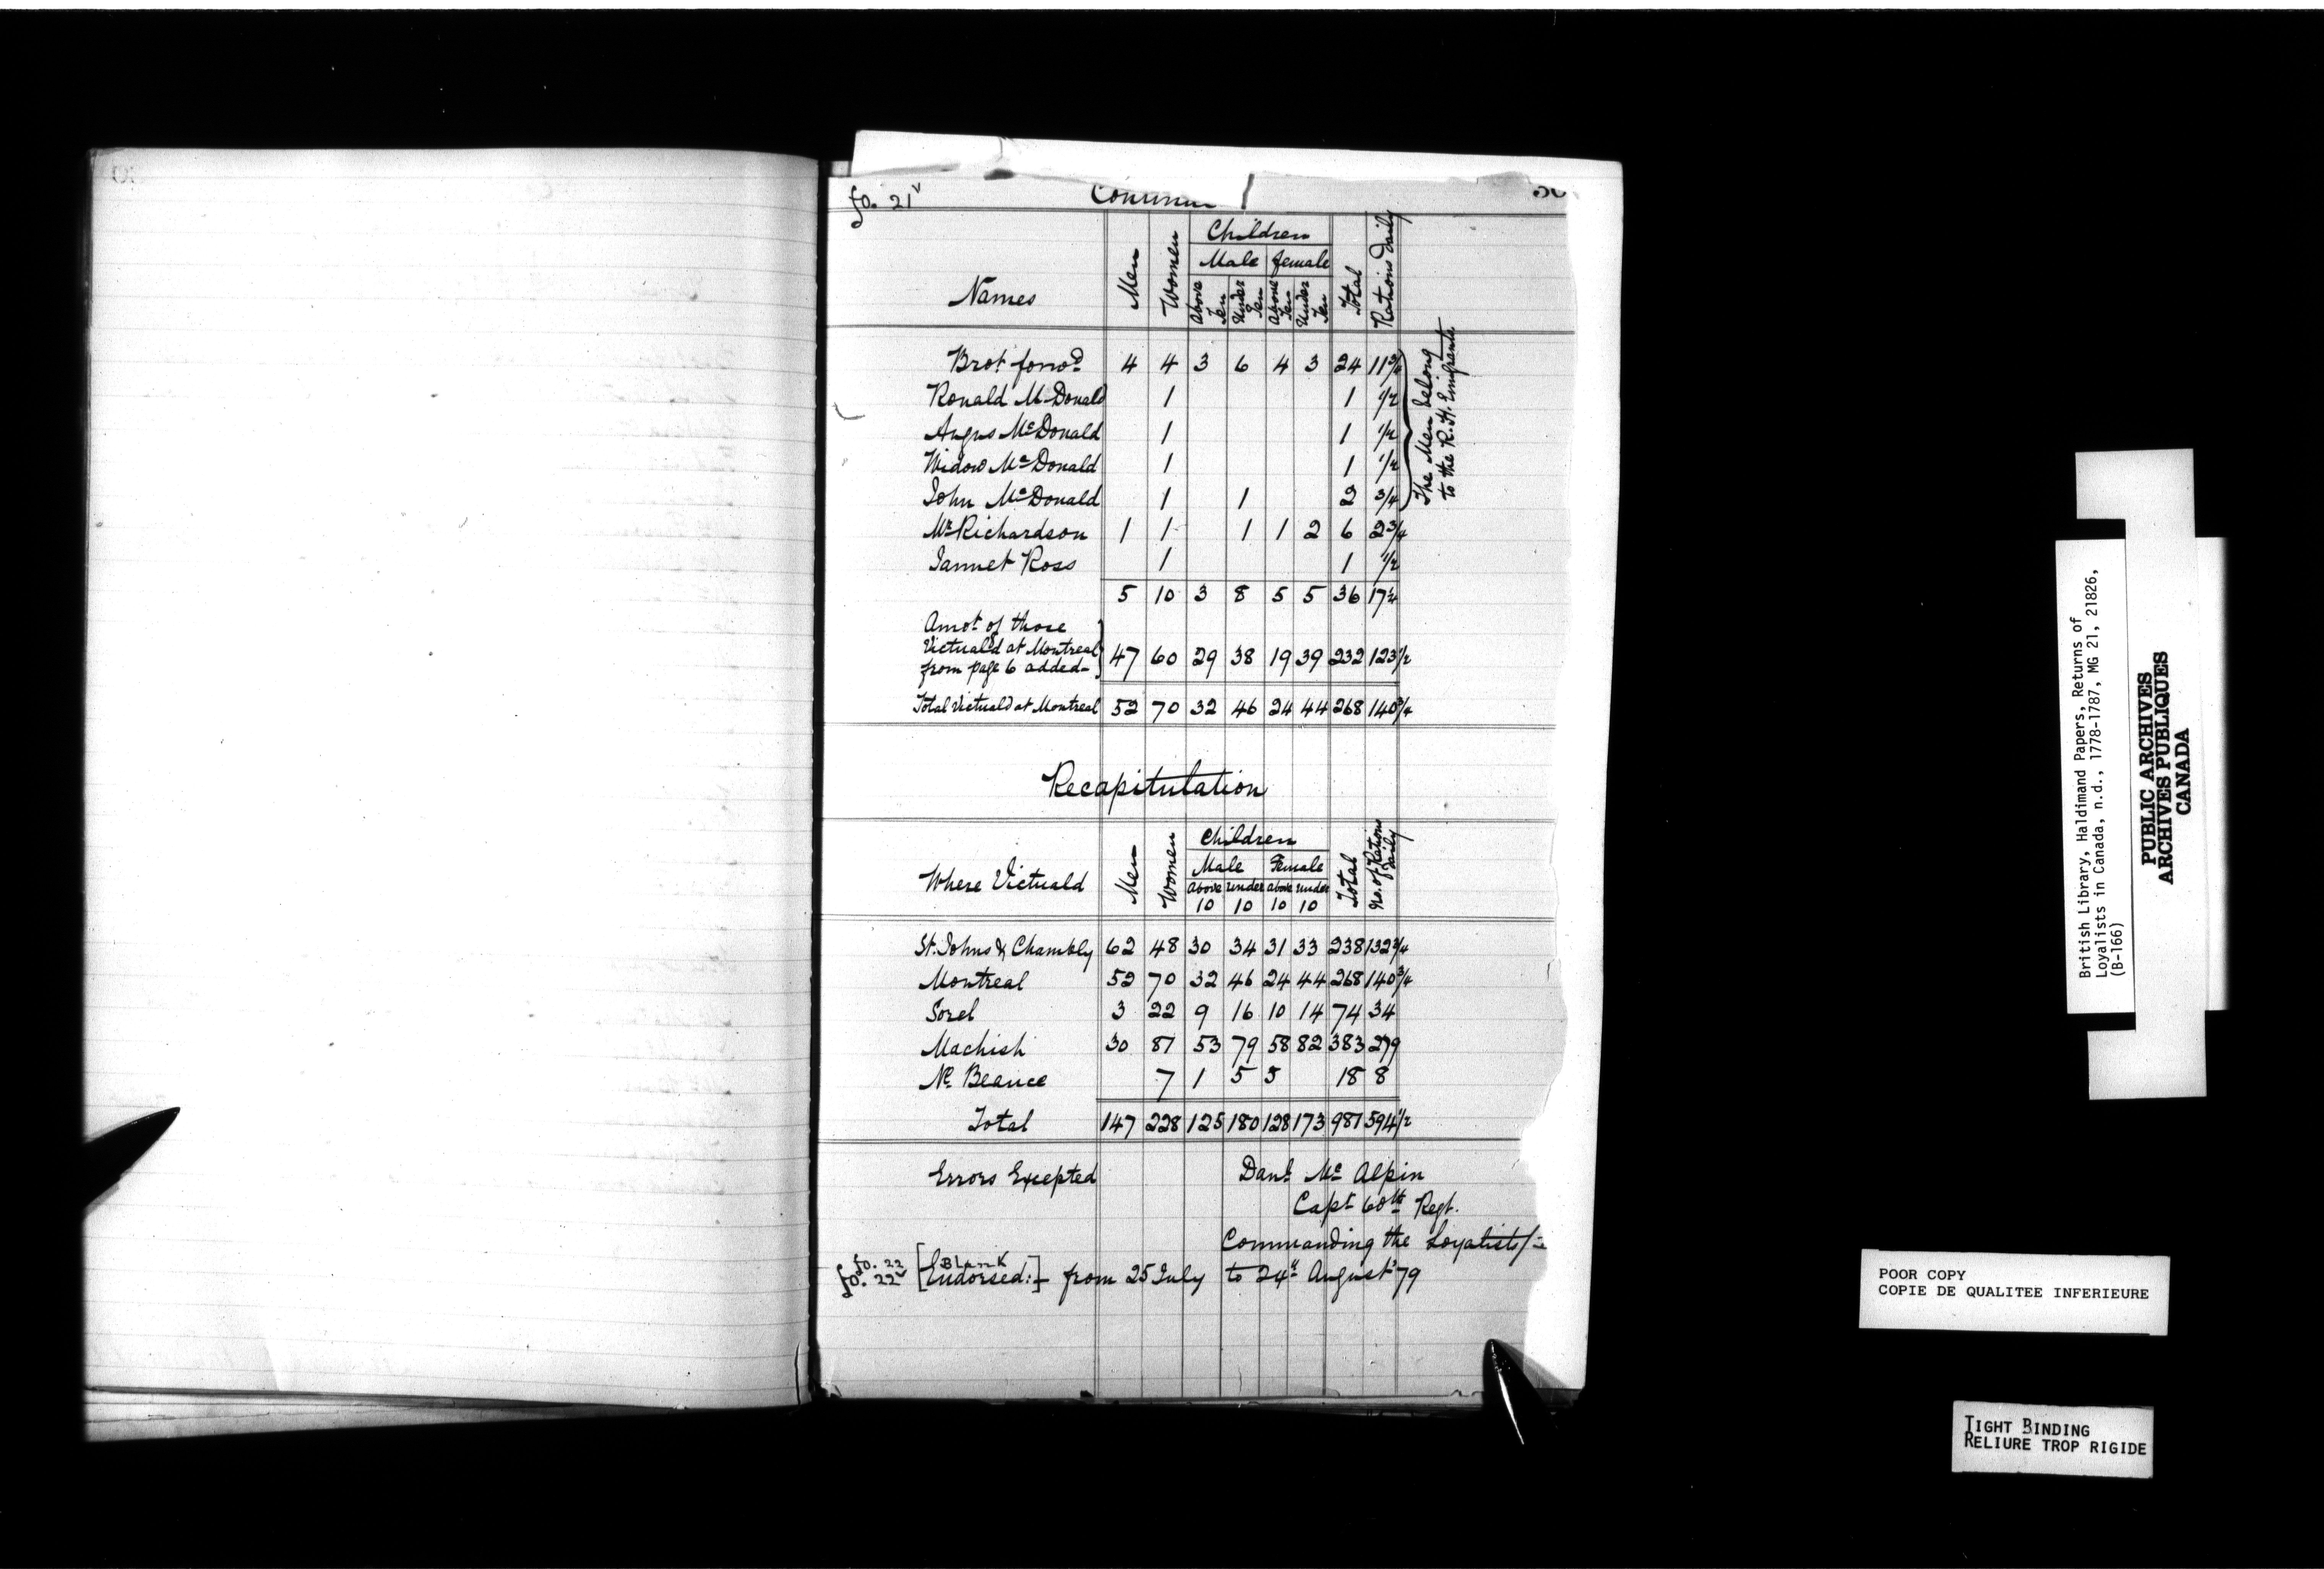 fo. 21v
Names Men Women Children Total Rations daily
Male female
Above Ten Under Ten Above Ten Under Ten
Brot forwd 4 4 3 6 4 3 24 11 3/4
Ronald McDonald 1 1 1/2
Angus McDonald 1 1 1/2
Widow McDonald 1 1 1/2
John McDonald 1 1 2 3/4
The Men belong
to the R. H. Emigrants
Mr Richardson 1 1 1 1 2 6 2 3/4
Jannet Ross 1 1 1/2
5 10 3 8 5 5 36 17 1/4
Amot of those
Victuald at Montreal
from page 6 added 47 60 29 38 19 39 232 123 1/2
Total Victuald at Montreal 52 70 32 46 24 44 268 140 3/4
Recapitulation
Where Victuald Men Women Children Total No. of Rations daily
Male Female
above 10 under 10 above 10 under 10
St. Johns & Chambly 62 48 30 34 31 33 238 132 3/4
Montreal 52 70 32 46 24 44 268 140 3/4
Sorel 3 22 9 16 10 14 74 34
Machish 30 81 53 79 58 82 383 279
Ne Beauce 7 1 5 5 18 8
Total 147 228 125 180 128 173 981 594 1/2
Errors Excepted Danl Mc Alpin
Capt 60th Regt.
Commanding the Loyalists
fo. 22 Blank
fo. 22v [Endorsed:- from 25 July to 24th August '79
British Library, Haldimand Papers, Returns of
Loyalists in Canada, n.d., 1778-1787, MG 21, 21826,
(B-166)
PUBLIC ARCHIVES
ARCHIVES PUBLIQUES
CANADA
POOR COPY
COPIE DE QUALITEE INFERIEURE
TIGHT BINDING
RELIURE TROP RIGIDE